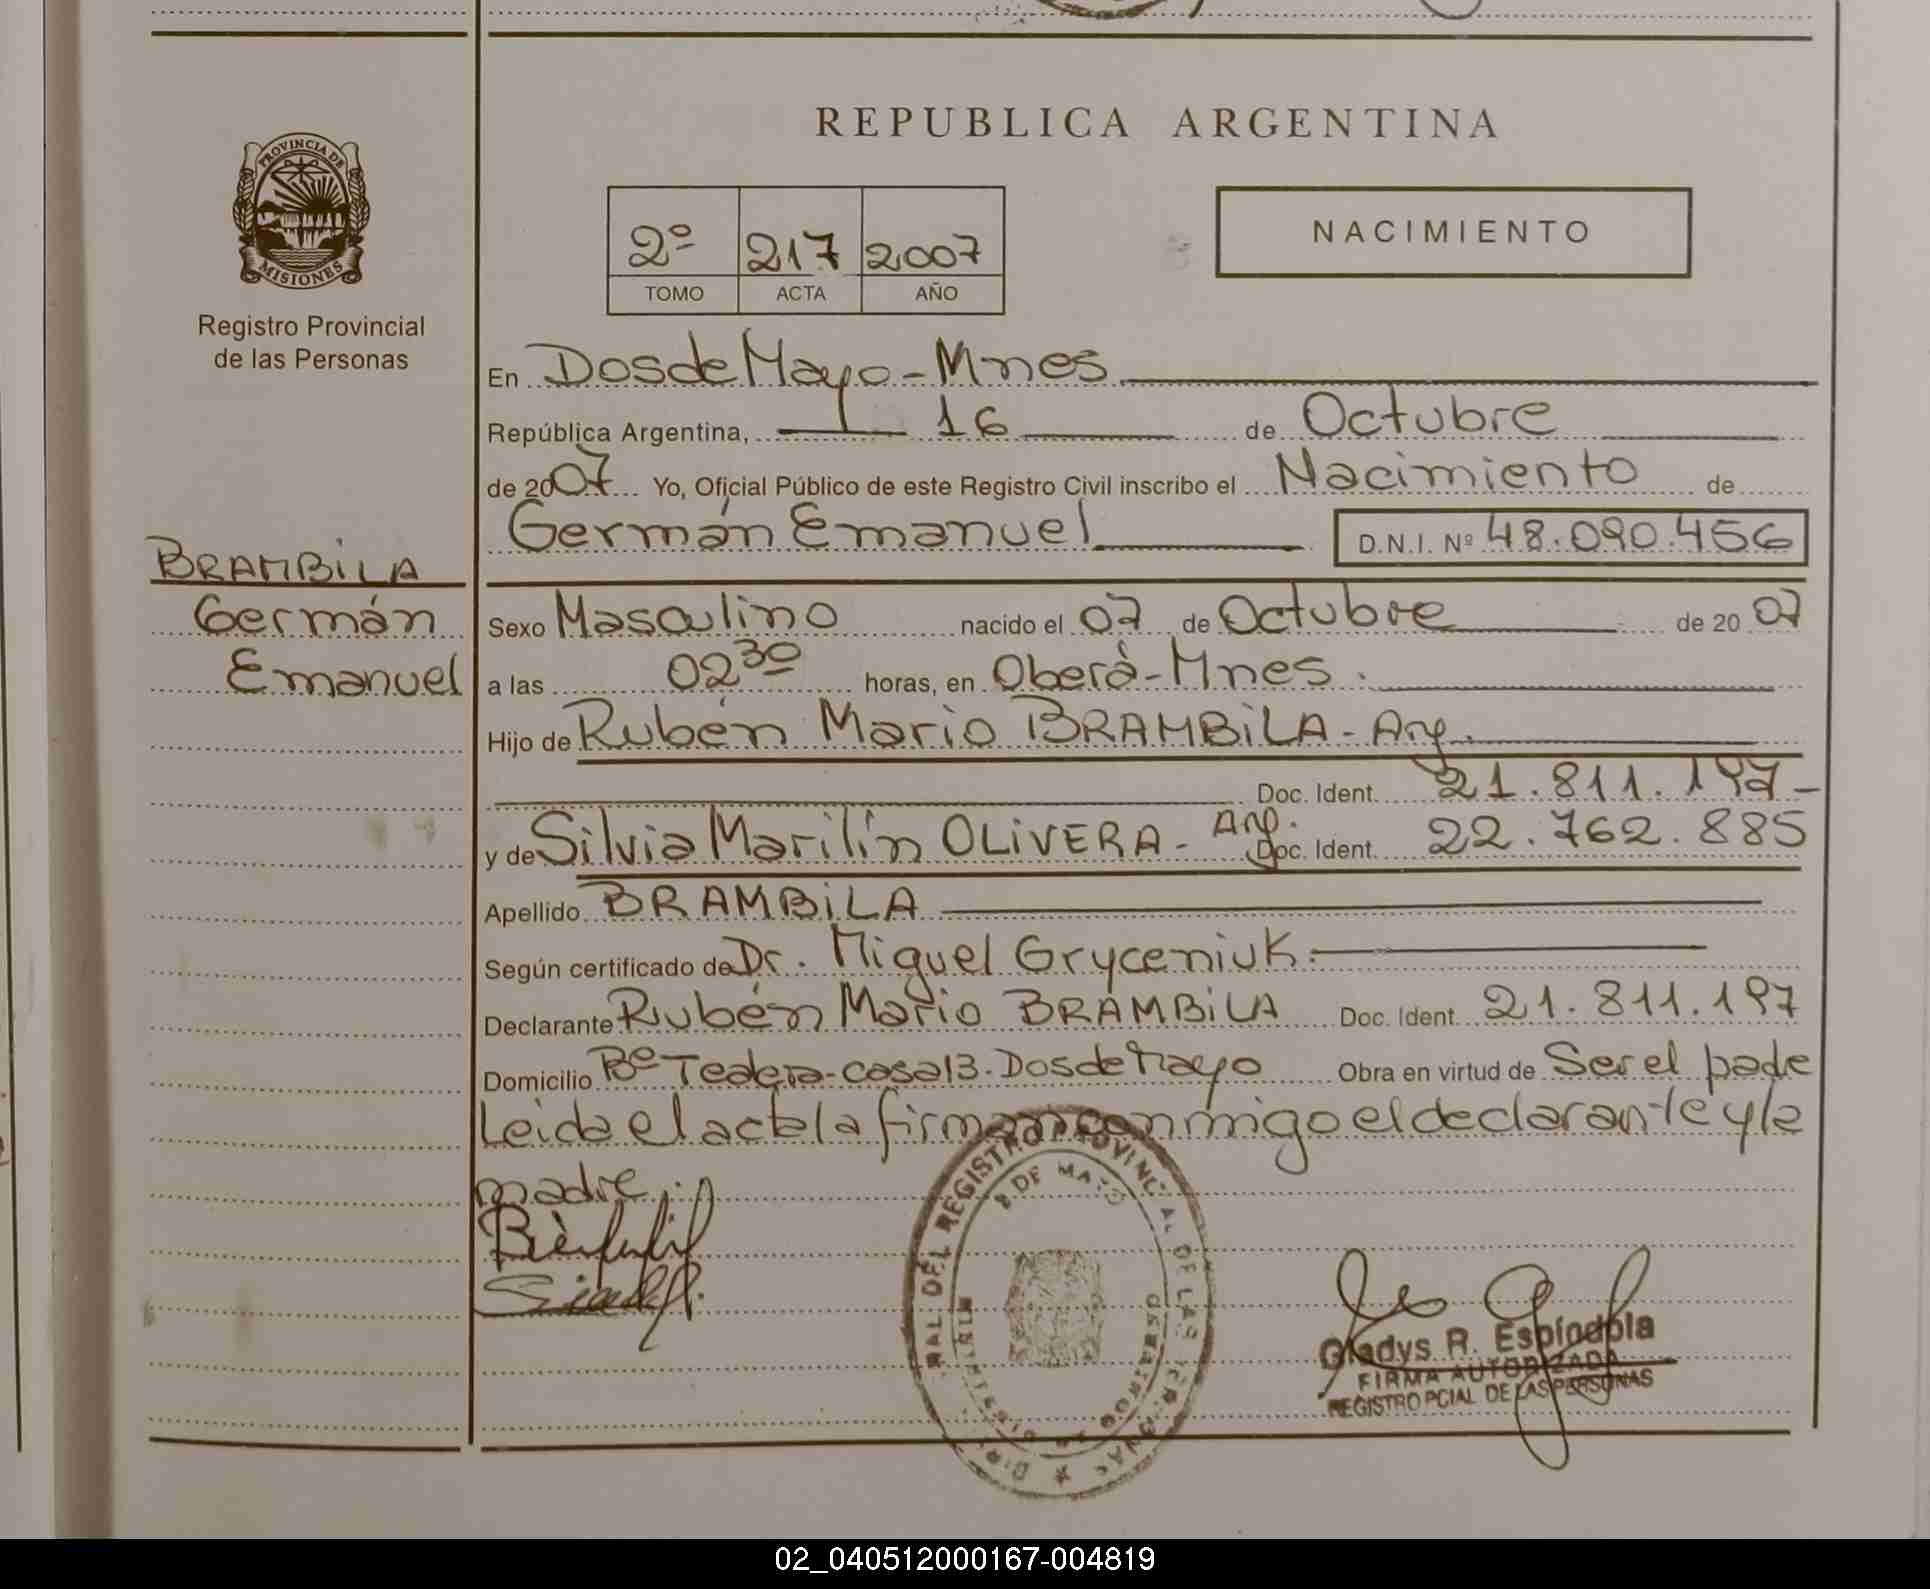 REPUBLICA ARGENTINA
PROVINCIA DE
MISIONES
Registro Provincial
de las Personas
2º 217 2007
TOMO ACTA AÑO
NACIMIENTO
En Dos de Mayo - Mnes
República Argentina, 16 de Octubre
de 2007 Yo, Oficial Público de este Registro Civil inscribo el Nacimiento de
Germán Emanuel D.N.I. Nº 48.090.456
BRAMBiLA
Germán
Emanuel
Sexo Masculino nacido el 07 de Octubre de 2007
a las 02 30 horas, en Oberá - Mnes.
Hijo de Rubén Mario BRAMBiLA - Arg.
Doc. Ident. 21.811.197-
y de Silvia Marilín OLiVERA - Arg. Doc. Ident. 22.762.885
Apellido BRAMBiLA
Según certificado de Dr. Miguel Gryceniuk.
Declarante Rubén Mario BRAMBiLA Doc. Ident. 21.811.197
Domicilio Bº - casa 13. Dos de Mayo Obra en virtud de Ser el padre
Leida el acta la firman conmigo el declarante y la
madre.
REGISTRO PROVINCIAL DE LAS
2 DE MAYO
Gladys R. Espindola
FIRMA AUTORIZADA
REGISTRO PCIAL DE LAS PERSONAS
02_040512000167-004819